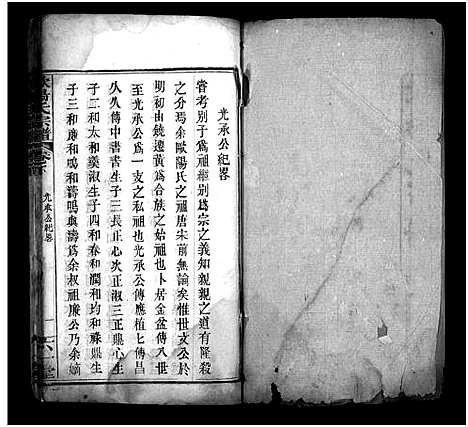 光承公紀畧
嘗考別子爲祖繼別爲宗之義知親親之道有隆殺
之分焉余歐陽氏之祖唐宋前無論矣惟世文公於
明初由饒遷黃爲合族之始祖也卜居金盆傳八世
至光承公爲一支之私祖也光承公傳應植七傳昌
久久傳中譜譜生子三長正心次正淑三正鼎心生
子二太和太羹淑生子四和春和潤和均和霖鼎生
子三和廉和鳴和濤鳴與濤爲余叔祖廉公乃余嫡
歐陽氏宗譜
卷首
光承公紀畧
一
六一堂